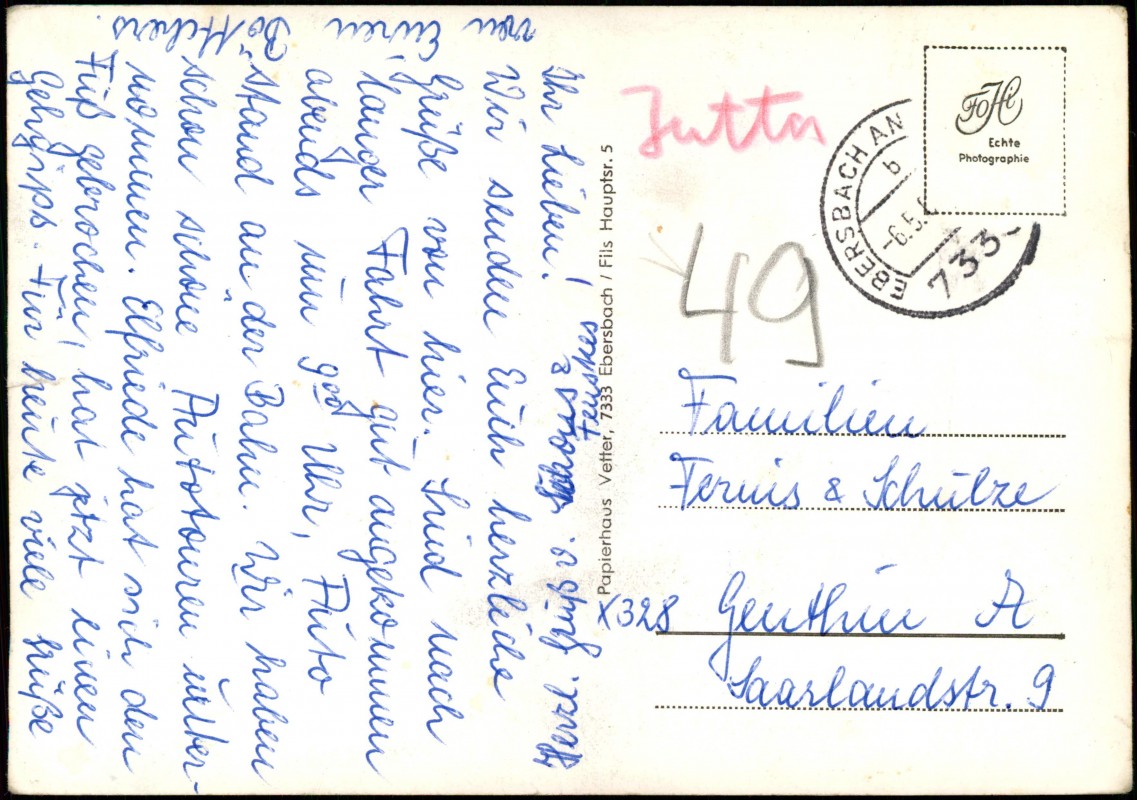 Ihr Lieben!
Wir senden Euch herzliche
Grüße von hier. Sind nach
langer Fahrt gut angekommen
abends um 9⁰⁰ Uhr, Auto
stand an der Bahn. Wir haben
schon schöne Autotouren unter-
nommen. Elfriede hat sich den
Fuß gebrochen! hat jetzt einen
Gehgips. Für heute viele Grüße
von Euren
Böttchers
Herzl. Grüße a.
Papierhaus Vetter, 7333 Ebersbach / Fils Hauptstr. 5
Jutta
49
EBERSBACH AN
b
-6.5.
733
FoHi
Echte
Photographie
Familien
Fernis & Schulze
X328 Genthin A
Saarlandstr. 9